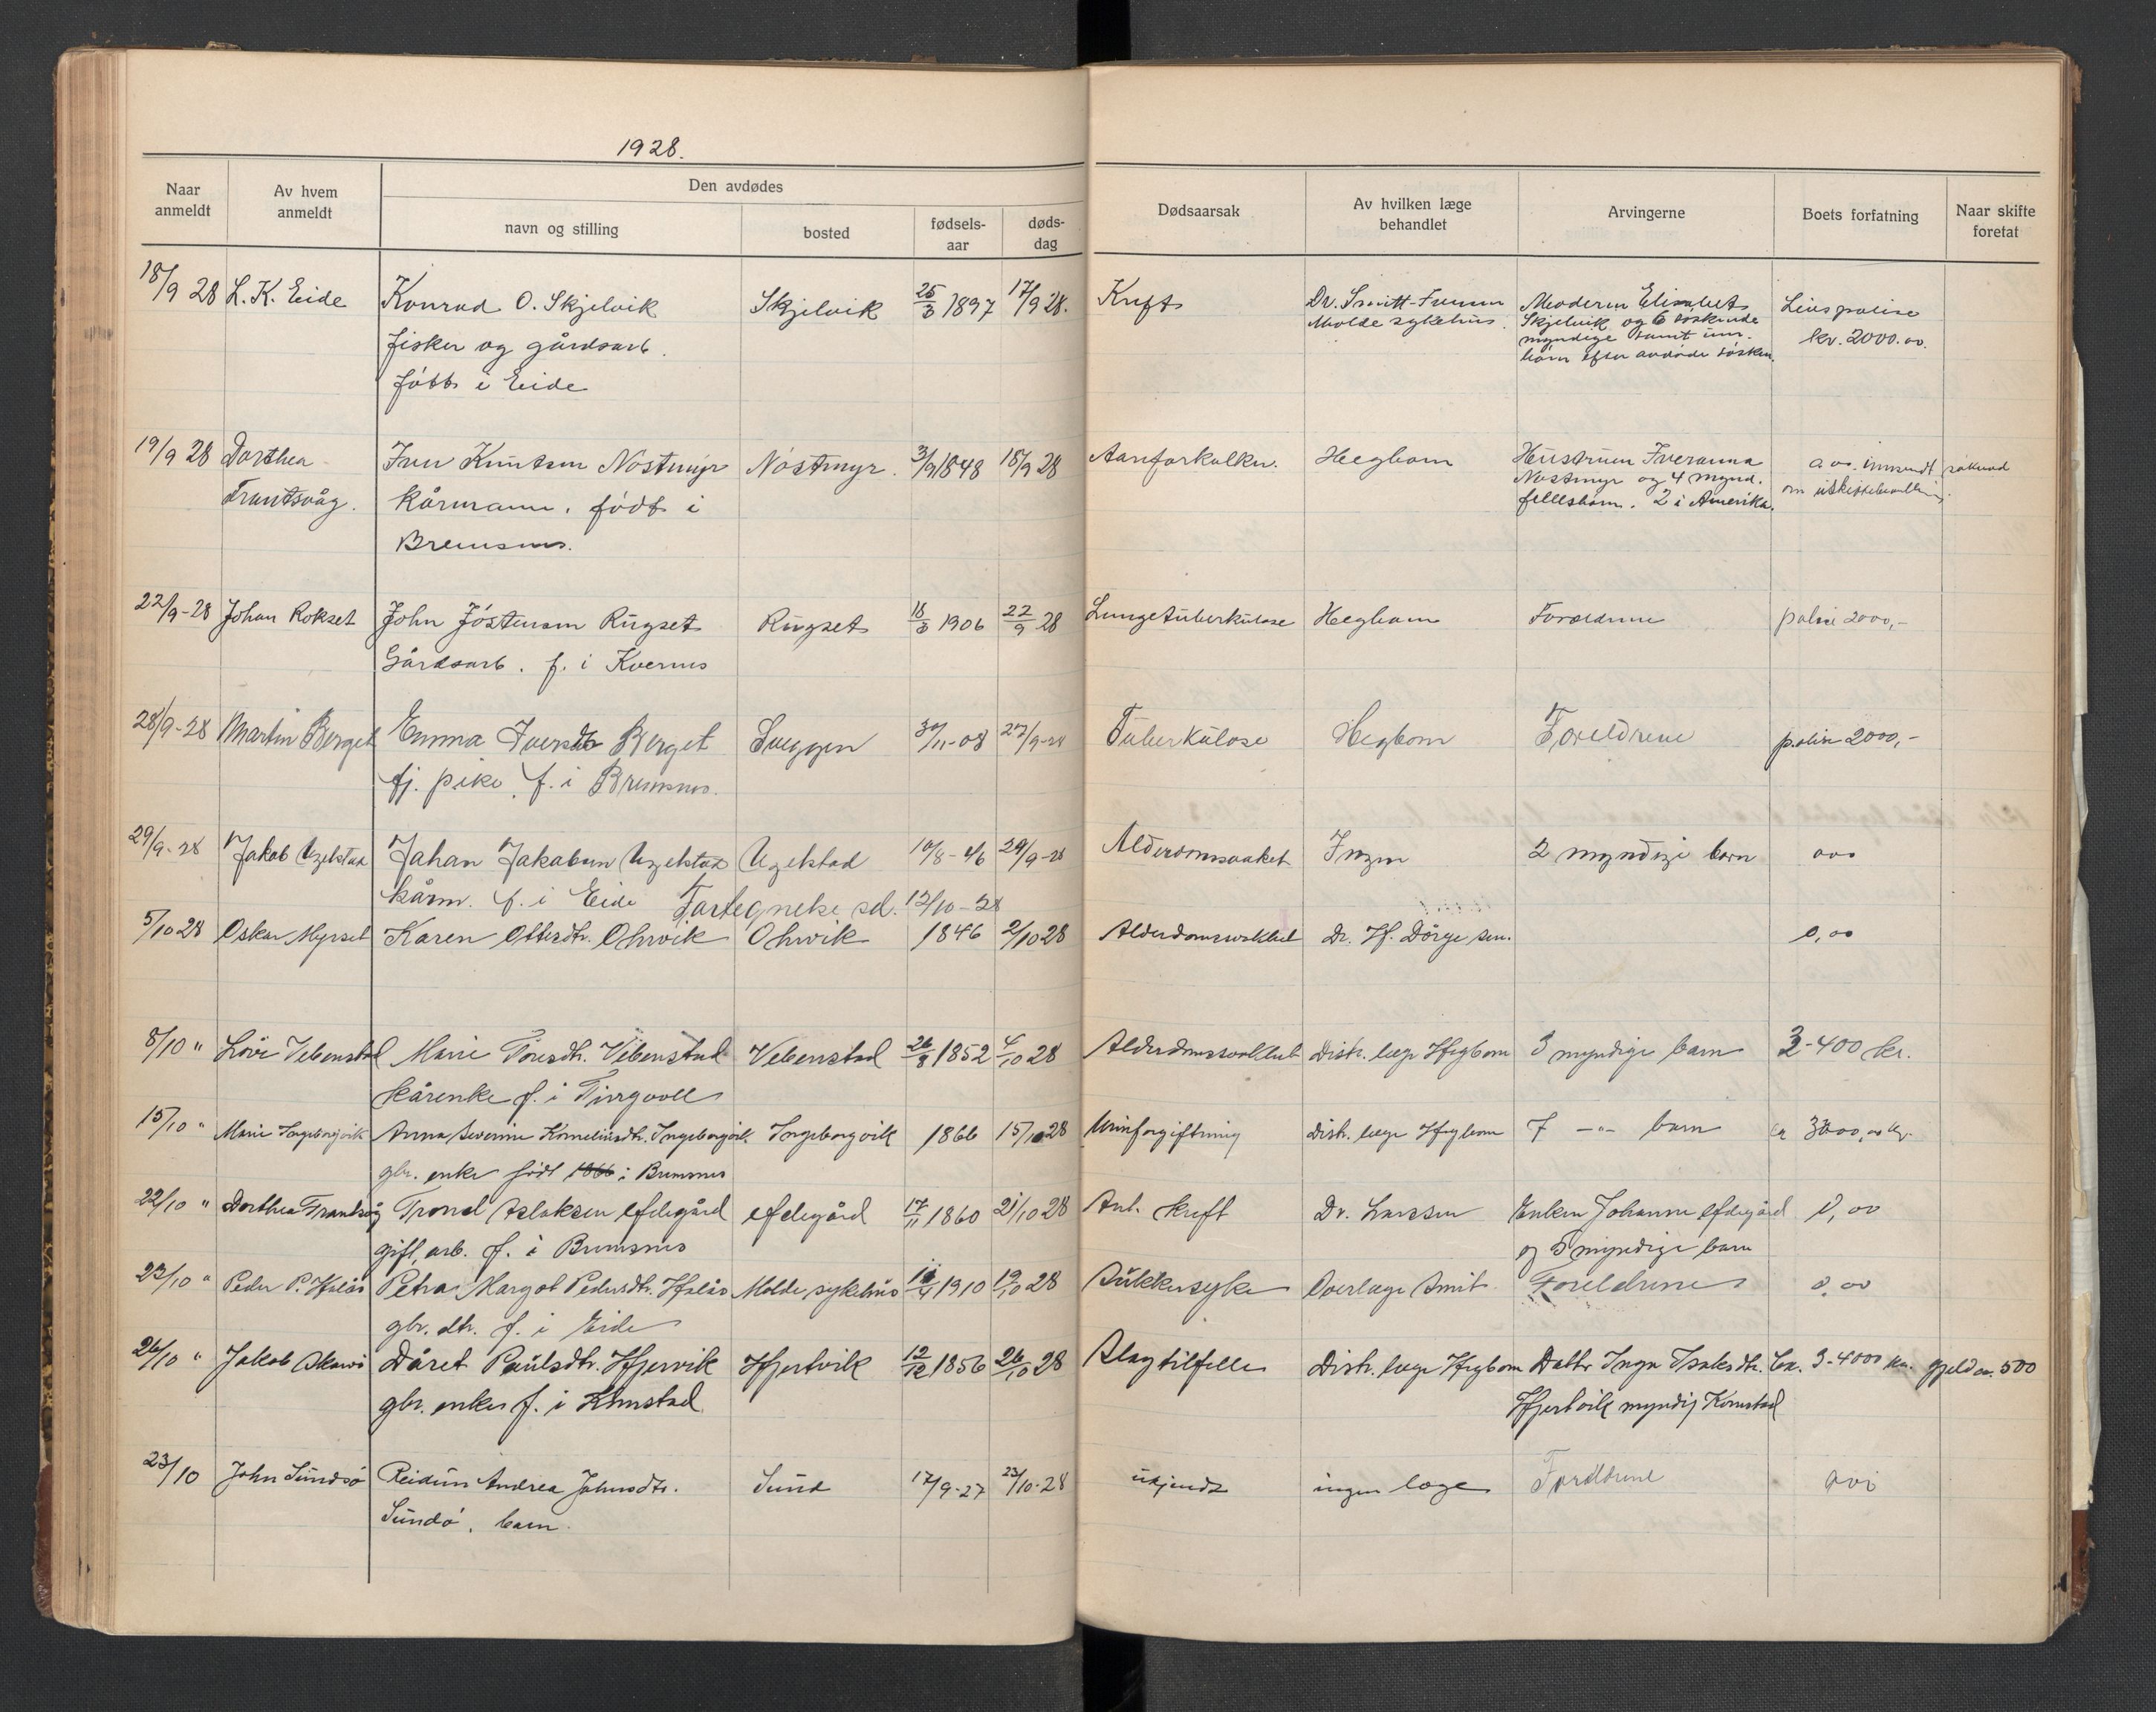 1928.
Naar anmeldt
Av hvem anmeldt
Den avdødes
navn og stilling
bosted
fødsels-aar
døds-dag
Dødsaarsak
Av hvilken læge behandlet
Arvingerne
Boets forfatning
Naar skifte foretat
18/9 28 L. K. Eide Konrad O. Skjelvik Skjelvik 25/3 1897 17/9 28. Kreft Dr. Molde sykehus. Moderen Elisabet Skjelvik og 6 søskende myndige samt um. børn efter avdøde søsken. Livspolise kr. 2000.00.
fisker og gårdsarb.
født i Eide
19/9 28 Dorthea Trantsvåg. Iver Knutsen Nøstmyr Nøstmyr. 3/9 1848 18/9 28 Aareforkalkn. Hegbom Hustruen Iveranna Nøstmyr og 4 mynd. fellesbarn. 2 i Amerika. innsendt søknad om
kårmann, født i
Bremsnes.
22/9-28 Johan Rokset John Jöstensen Rugset Rugset 18/3 1906 22/9 28 Lungetuberkulose Hegbom Foreldrene polise 2000,-
Gårdsarb. f. i Kvernes
28/9-28 Martin Berget Emma Iversdtr Berget Sveggen 30/11-08 27/9-28 Tuberkulose Hegbom Foreldrene polise 2000,-
fj. pike f. i Bremsnes.
29/9-28 Jakob Ugelstad Johan Jakobsen Ugelstad Ugelstad 10/8-46 29/9-28 Alderdomsvaket Ingen 2 myndige barn 000
kårm. f. i Eide 12/10-28
5/10 28 Oskar Myrset Karen Ottersdtr. Ohrvik Ohrvik 1846 2/10 28 Alderdomssvakhet Dr. H. Dörge sen. 0,00
8/10 " Vebenstad Marie Toresdtr. Vebenstad Vebenstad 26/8 1852 4/10 28 Alderdomssvakhet Distr. læge Hegbom 3 myndige barn 3-400 kr.
kårenke f. i Tingvoll
15/10 " Marie Ingeborgvik Anna Severine Korneliusdtr. Ingeborgvik Ingeborgvik 1866 15/10 28 Urinforgiftning Distr. læge Hegbom 7 -"- barn ca 3000,00 kr.
gbr. enke født 1866 i Bremsnes
22/10 " Dorthea Trantsvåg Trond Aslaksen Ødegård Ødegård 17/11 1860 21/10 28 Ant. kreft Dr. Larssen Enken Johanne Ødegård 0,00
gift, arb. f. i Bremsnes og 5 myndige barn
23/10 " Peder P. Halås Petra Margot Pedersdtr. Halås Molde sykehus 11/4 1910 19/10 28 Sukkersyke Overlæge Smit Foreldrene 0,00
gbr. dtr. f. i Eide
26/10 " Jakob Skarvö Dåret Paulsdtr. Hjertvik Hjertvik 12/12 1856 26/10 28 Slagtilfelle Distr. læge Hegbom Datter Inga Isaksdtr. Ca. 3-4000 kr. gjeld ca. 500
gbr. enke f. i Kornstad Hjertvik myndig Kornstad
23/10 John Sundsö Reidun Andrea Johnsdtr. Sund 17/9-27 23/10-28 ukjendt ingen læge Foreldrene
Sundö, barn.